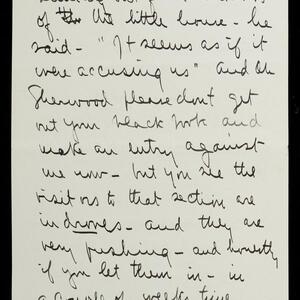 of the little house - he
said - "It seems as if it
were accusing us" and Oh
Sherwood please don't get
out your black book and
make an entry against
me now - but you see the
visitors to that section are
in droves - and they are
very pushing - and honestly
if you let them in - in
a couple of weeks time